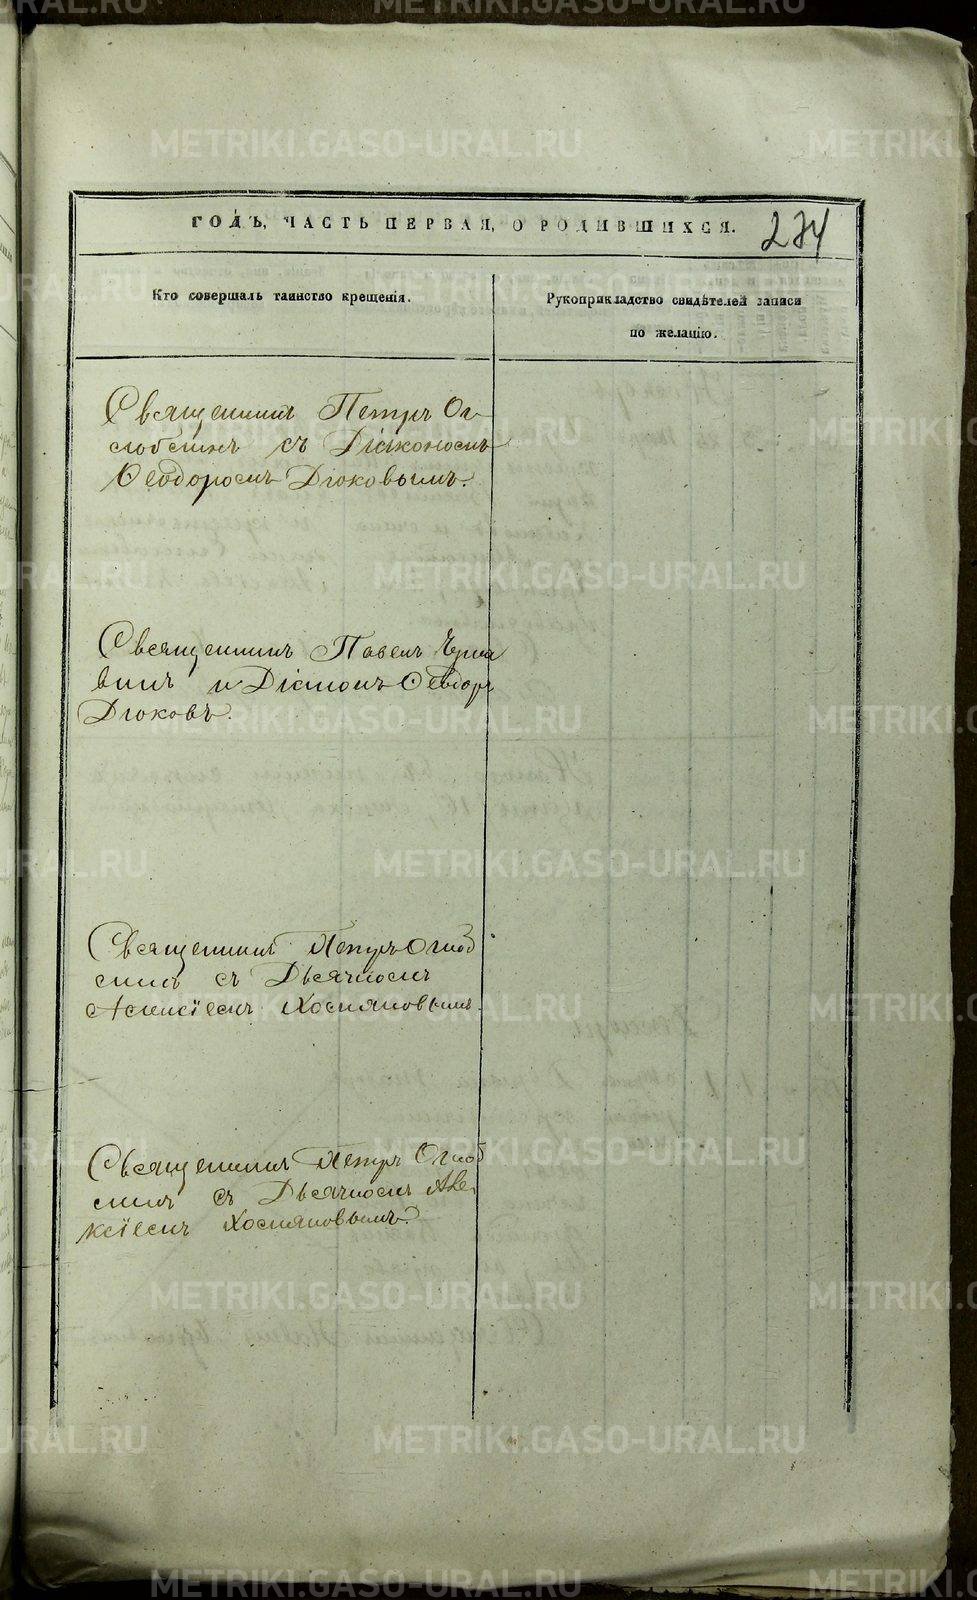 ГОДЪ, ЧАСТЬ ПЕРВАЯ, О РОДИВШИХСЯ.
274
Кто совершалъ таинство крещенія.
Рукоприкладство свидѣтелей записи
по желанію.
Священникъ Петръ Ог
лоблинъ съ Діакономъ
Ѳеодоромъ Дюковымъ.
Священникъ Павелъ
и Діаконъ Ѳеодоръ
Дюковъ.
Священникъ Петръ Оглоб
линъ съ Дьячкомъ
Алексіемъ Хосияновымъ.
Священникъ Петръ Оглоб
линъ съ Дьячкомъ Але
ксіемъ Хосияновымъ.
METRIKI.GASO-URAL.RU